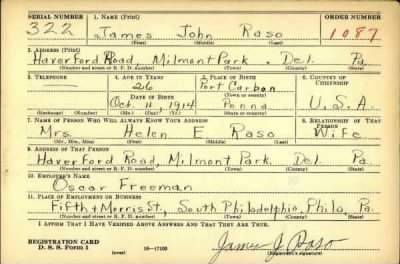 SERIAL NUMBER 1. NAME (Print) ORDER NUMBER
322 James John Raso 1087
(First) (Middle) (Last)
2. ADDRESS (Print)
Haverford Road, Milmont Park. Del. Pa.
(Number and street or R. F. D. number) (Town) (County) (State)
3. TELEPHONE 4. AGE IN YEARS 5. PLACE OF BIRTH 6. COUNTRY OF CITIZENSHIP
— 26 Port Carbon
DATE OF BIRTH (Town or county)
Oct. 11, 1914 Penna U.S.A.
(Exchange) (Number) (Mo.) (Day) (Yr.) (State or country)
7. NAME OF PERSON WHO WILL ALWAYS KNOW YOUR ADDRESS 8. RELATIONSHIP OF THAT PERSON
Mrs. Helen E Raso Wife
(Mr., Mrs., Miss) (First) (Middle) (Last)
9. ADDRESS OF THAT PERSON
Haverford Road, Milmont Park. Del. Pa.
(Number and street or R. F. D. number) (Town) (County) (State)
10. EMPLOYER'S NAME
Oscar Freeman
11. PLACE OF EMPLOYMENT OR BUSINESS
Fifth + Morris St., South Philadelphia, Phila, Pa.
(Number and street or R. F. D. number) (Town) (County) (State)
I AFFIRM THAT I HAVE VERIFIED ABOVE ANSWERS AND THAT THEY ARE TRUE.
REGISTRATION CARD
D. S. S. Form 1 (over) 16—17105 James J. Raso
(Registrant's signature)